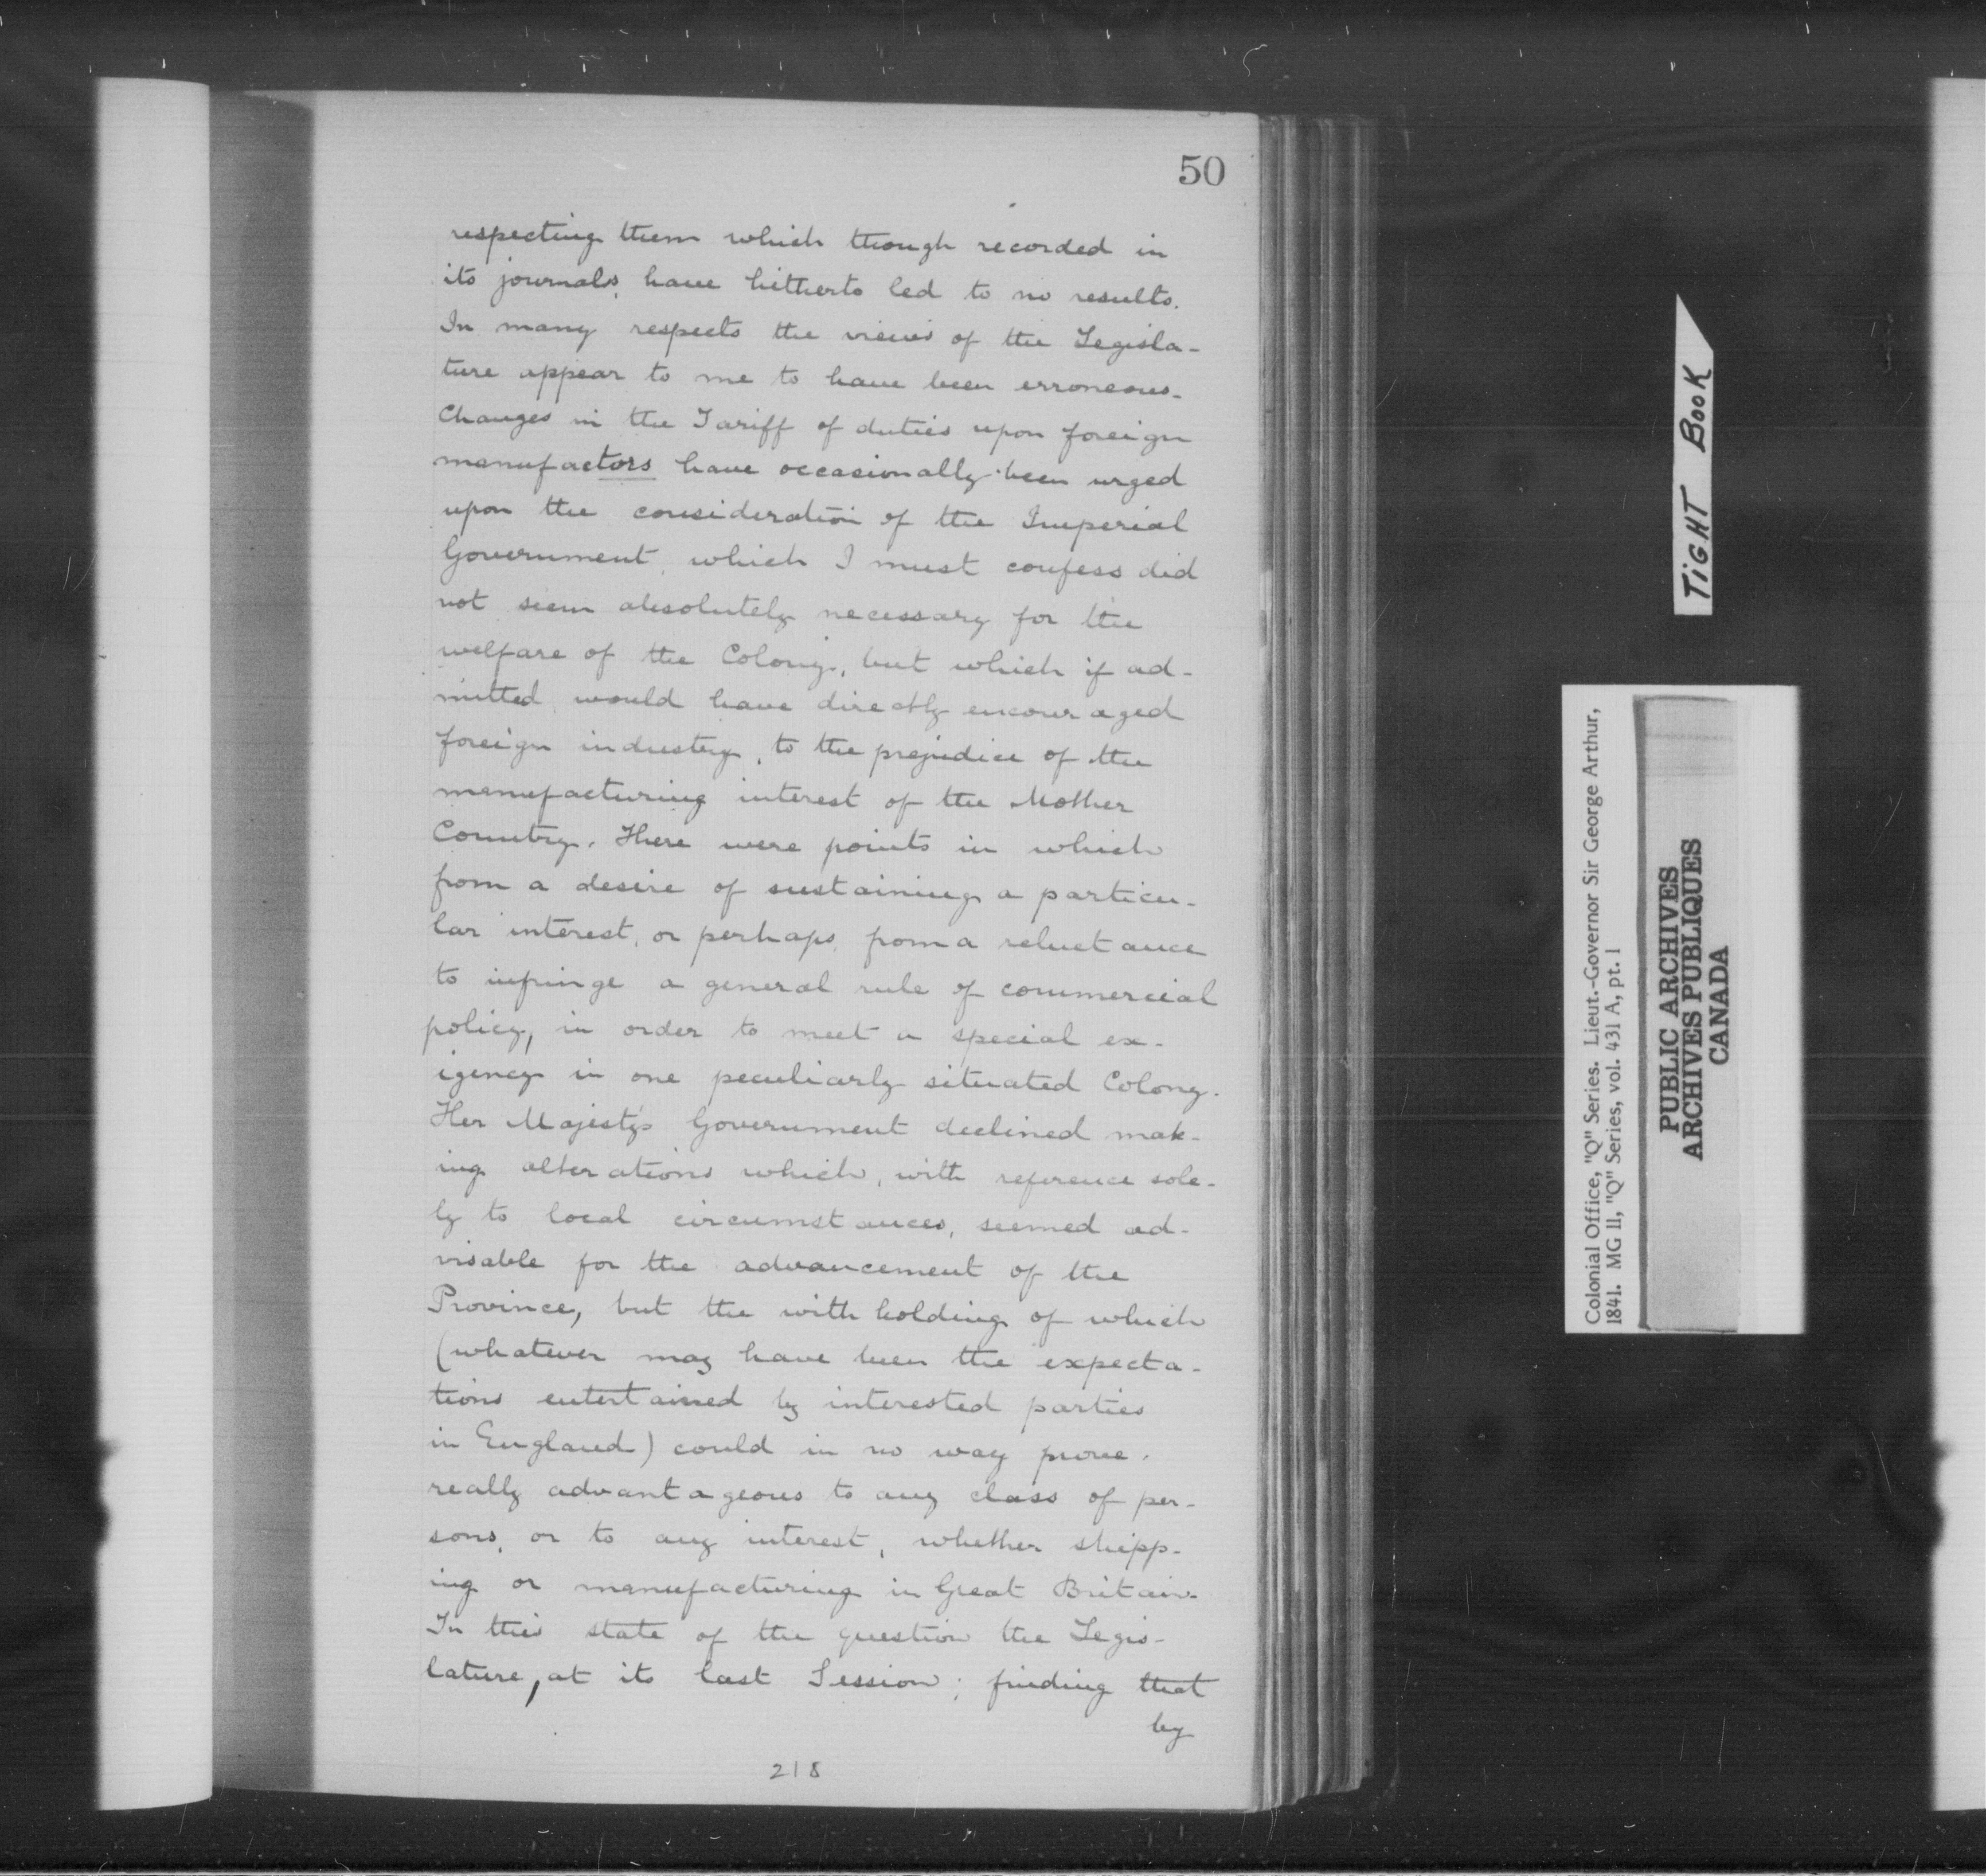 50
respecting them which though recorded in
its journals, have hitherto led to no results.
In many respects the views of the Legisla-
ture appear to me to have been erroneous.
Changes in the Tariff of duties upon foreign
manufactors have occasionally been urged
upon the consideration of the Imperial
Government, which I must confess did
not seem absolutely necessary for the
welfare of the Colony, but which if ad-
mitted, would have directly encouraged
foreign industry, to the prejudice of the
manufacturing interest of the Mother
Country. There were points in which
from a desire of sustaining a particu-
lar interest, or perhaps, from a reluctance
to infringe a general rule of commercial
policy, in order to meet a special ex-
igency in one peculiarly situated Colony.
Her Majesty's Government declined mak-
ing alterations which, with reference sole-
ly to local circumstances, seemed ad-
visable for the advancement of the
Province, but the with holding of which
(whatever may have been the expecta-
tions entertained by interested parties
in England) could in no way prove.
really advantageous to any class of per-
sons, or to any interest, whether shipp-
ing or manufacturing in Great Britain.
In this state of the question the Legis-
lature, at its last Session; finding that
by
218
TIGHT BOOK
Colonial Office, "Q" Series. Lieut.-Governor Sir George Arthur,
1841. MG 11, "Q" Series, vol. 431 A, pt. 1
PUBLIC ARCHIVES
ARCHIVES PUBLIQUES
CANADA